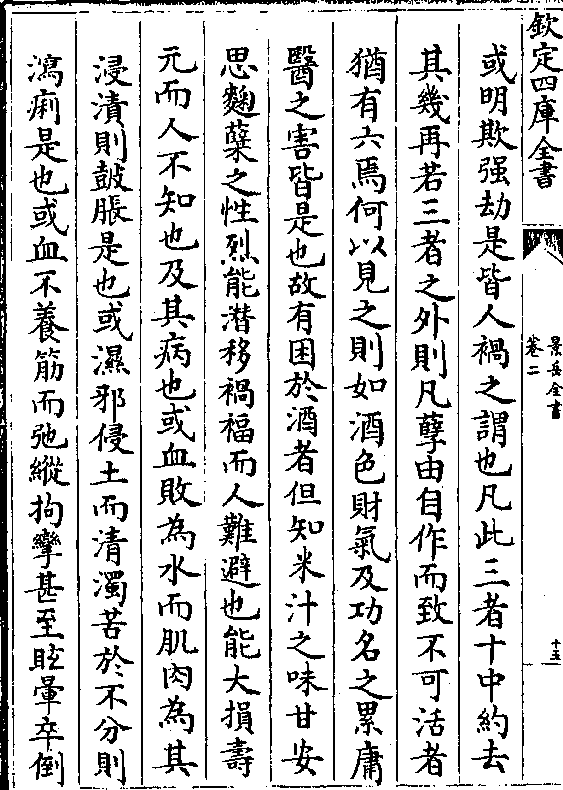 欽定四庫全書
景岳全書
卷二
十五
或明欺强劫是皆人禍之謂也凡此三者十中約去
其幾再若三者之外則凡孽由自作而致不可活者
猶有六焉何以見之則如酒色財氣及功名之累庸
醫之害皆是也故有困於酒者但知米汁之味甘安
思麴蘖之性烈能潛移禍福而人難避也能大損壽
元而人不知也及其病也或血敗為水而肌肉為其
浸漬則鼓脹是也或濕邪侵土而清濁苦於不分則
瀉痢是也或血不養筋而弛縱拘攣甚至眩暈卒倒